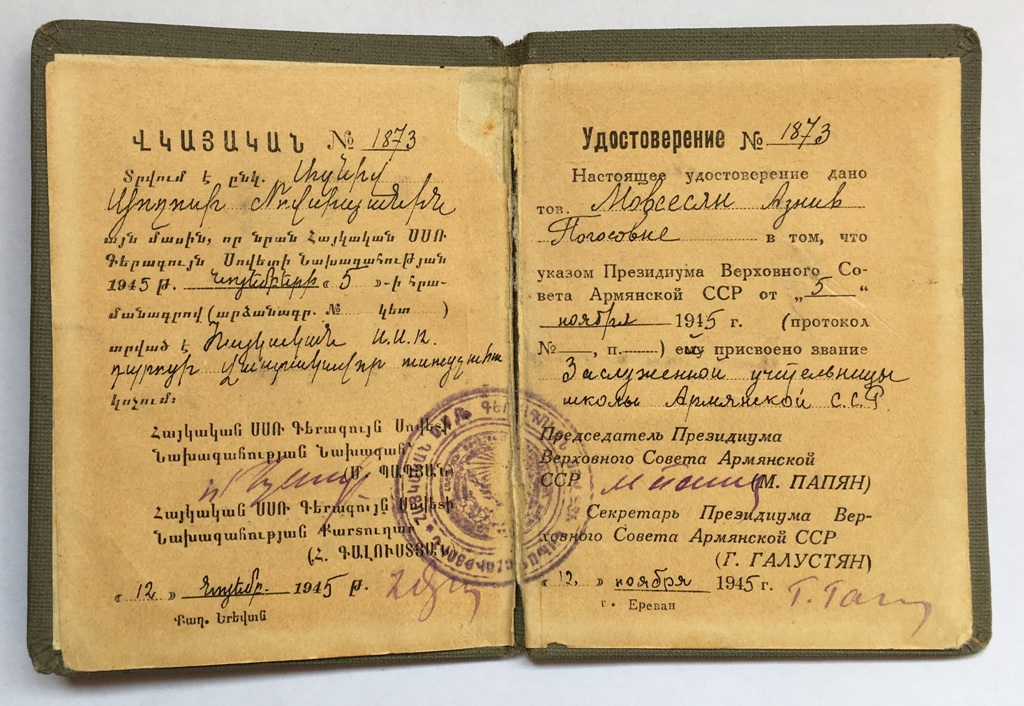 ՎԿԱՅԱԿԱՆ № 1873
Տրվում է ընկ.
այն մասին, որ նրան Հայկական ՍՍՌ
Գերագույն Սովետի Նախագահության
1945 թ. նոյեմբերի « 5 »-ի հրա-
մանագրով (արձանագր. № կետ )
տրված է Հայկական Ս.Ս.Ռ.
դպրոցի վաստակավոր
կոչում։
Հայկական ՍՍՌ Գերագույն Սովետի
Նախագահության Նախագահ
(Մ. ՊԱՊՅԱՆ)
Հայկական ՍՍՌ Գերագույն Սովետի
Նախագահության Քարտուղար
(Հ. ԳԱԼՈՒՍՏՅԱՆ)
« 12 » նոյեմբ. 1945 թ.
Քաղ. Երևան
Удостоверение № 1873
Настоящее удостоверение дано
тов. Мовсесян Азнив
Погосовне в том, что
указом Президиума Верховного Со-
вета Армянской ССР от „ 5 “
ноября 1945 г. (протокол
№ , п. ) ей присвоено звание
Заслуженной учительницы
школы Армянской С.С.Р.
Председатель Президиума
Верховного Совета Армянской
ССР (М. ПАПЯН)
Секретарь Президиума Вер-
ховного Совета Армянской ССР
(Г. ГАЛУСТЯН)
« 12 » ноября 1945 г.
г. Ереван